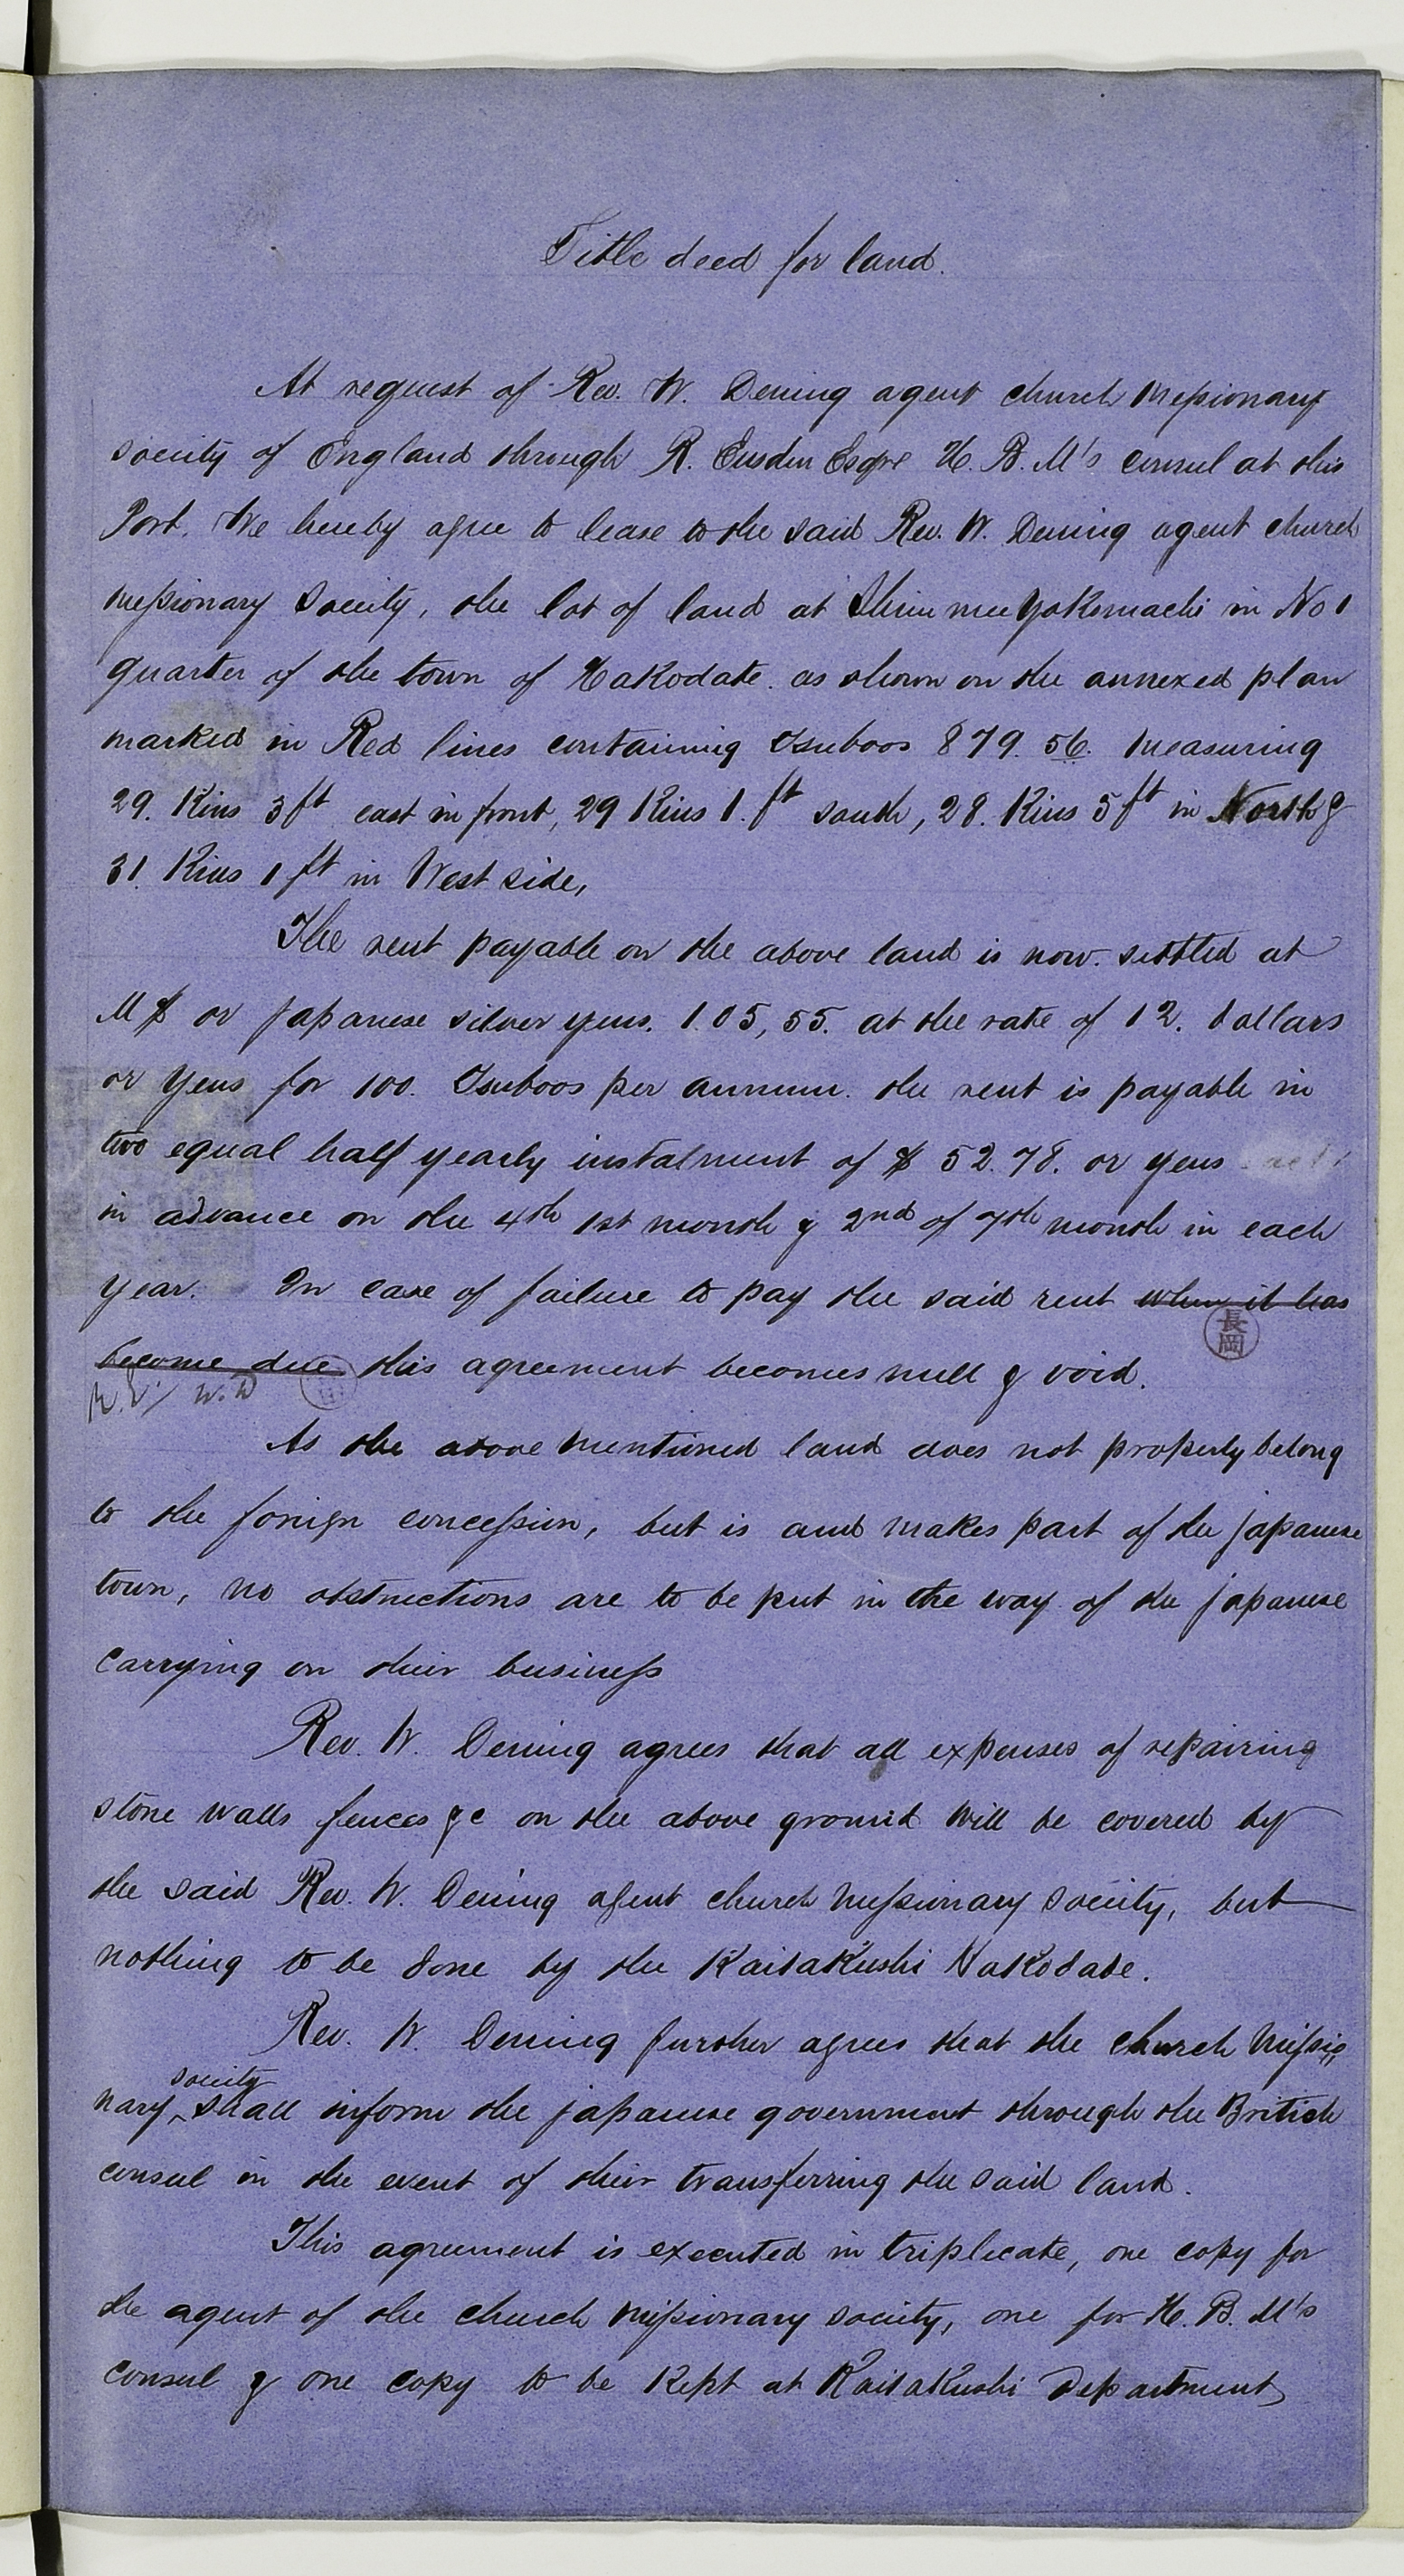 Title deed for land.
At request of Rev. W. Dening agent church Missionary
society of England through R. Eusden Esqre H. B. M's consul at this
Port. We hereby agree to lease to the said Rev. W. Dening agent church
missionary Society, the lot of land at in No 1
quarter of the town of Hakodate. as shown on the annexed plan
marked in Red lines containing Tsuboos 879. 56. measuring
29. Kens 3 ft east in front, 29 Kens 1. ft south, 28. Kens 5 ft in North &
31. Kens 1 ft in West side,
The rent payable on the above land is now. settled at
M $ or japanese silver yens. 1.05,55. at the rate of 12. dollars
or Yens for 100. Tsuboos per annum. the rent is payable in
two equal half yearly instalment of $ 52.78. or yens
in advance on the 4th 1st month & 2nd of 7th month in each
year. In case of failure to pay the said rent when it has
長岡
become due this agreement becomes null & void.
R.E. / W.D
As the above mentioned land does not properly belong
to the foreign concession, but is and makes part of the japanese
town, no obstructions are to be put in the way of the japanese
carrying on their business
Rev. W. Dening agrees that all expenses of repairing
stone walls fences &c on the above ground will be covered by
the said Rev. W. Dening agent church missionary society, but
nothing to be done by the Kaitakushi Hakodate.
Rev. W. Dening further agrees that the church Missio
society
nary shall inform the japanese government through the British
consul in the event of their transferring the said land.
This agreement is executed in triplicate, one copy for
the agent of the church missionary society, one for H. B. M's
consul & one copy to be kept at Kaitakushi Department